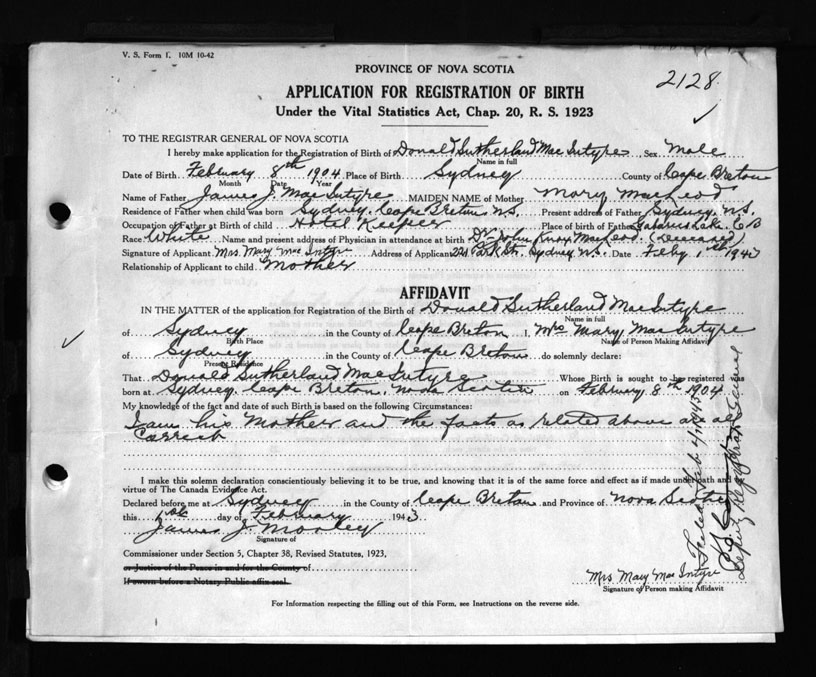 V. S. Form 1. 10M 10-42
PROVINCE OF NOVA SCOTIA
2128
APPLICATION FOR REGISTRATION OF BIRTH
Under the Vital Statistics Act, Chap. 20, R. S. 1923
TO THE REGISTRAR GENERAL OF NOVA SCOTIA
I hereby make application for the Registration of Birth of Donald Sutherland MacIntyre Sex Male
Name in full
Date of Birth February 8th 1904 Place of Birth Sydney County of Cape Breton
Month Date Year
Name of Father James J. MacIntyre MAIDEN NAME of Mother Mary MacLeod
Residence of Father when child was born Sydney. Cape Breton N.S. Present address of Father Sydney N.S.
Occupation of Father at Birth of child Hotel Keeper Place of birth of Father Gabarus Lake C B
Race White Name and present address of Physician in attendance at birth Dr John Knox MacLeod. (Deceased)
Signature of Applicant Mrs. Mary MacIntyre Address of Applicant Park St. Sydney N.S. Date Feby 1st 1943
Relationship of Applicant to child Mother
AFFIDAVIT
IN THE MATTER of the application for Registration of the Birth of Donald Sutherland MacIntyre
Name in full
of Sydney in the County of Cape Breton I, Mrs Mary MacIntyre
Birth Place Name of Person Making Affidavit
of Sydney in the County of Cape Breton do solemnly declare:
Present Residence
That Donald Sutherland MacIntyre Whose Birth is sought to be registered was
born at Sydney, Cape Breton, Nova Scotia on February 8th 1904
My knowledge of the fact and date of such Birth is based on the following Circumstances:
I am his Mother and the facts as related above are all
Correct
I make this solemn declaration conscientiously believing it to be true, and knowing that it is of the same force and effect as if made under oath and
virtue of The Canada Evidence Act.
Declared before me at Sydney in the County of Cape Breton and Province of Nova Scotia
this 1st day of February 1943
James J Morley
Signature of
Commissioner under Section 5, Chapter 38, Revised Statutes, 1923,
or Justice of the Peace in and for the County of
If sworn before a Notary Public affix seal.
Mrs Mary MacIntyre
Signature of Person making Affidavit
For Information respecting the filling out of this Form, see Instructions on the reverse side.
Filed Feb 4/1943
Deputy Registrar General